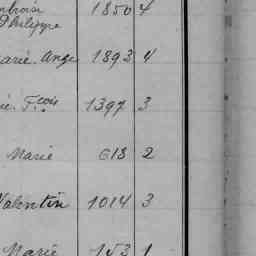 1850 4
Philippe
Marie Ange 1893 4
Fcois 1397 3
Marie 618 2
Valentin 1014 3
Marie 153 1